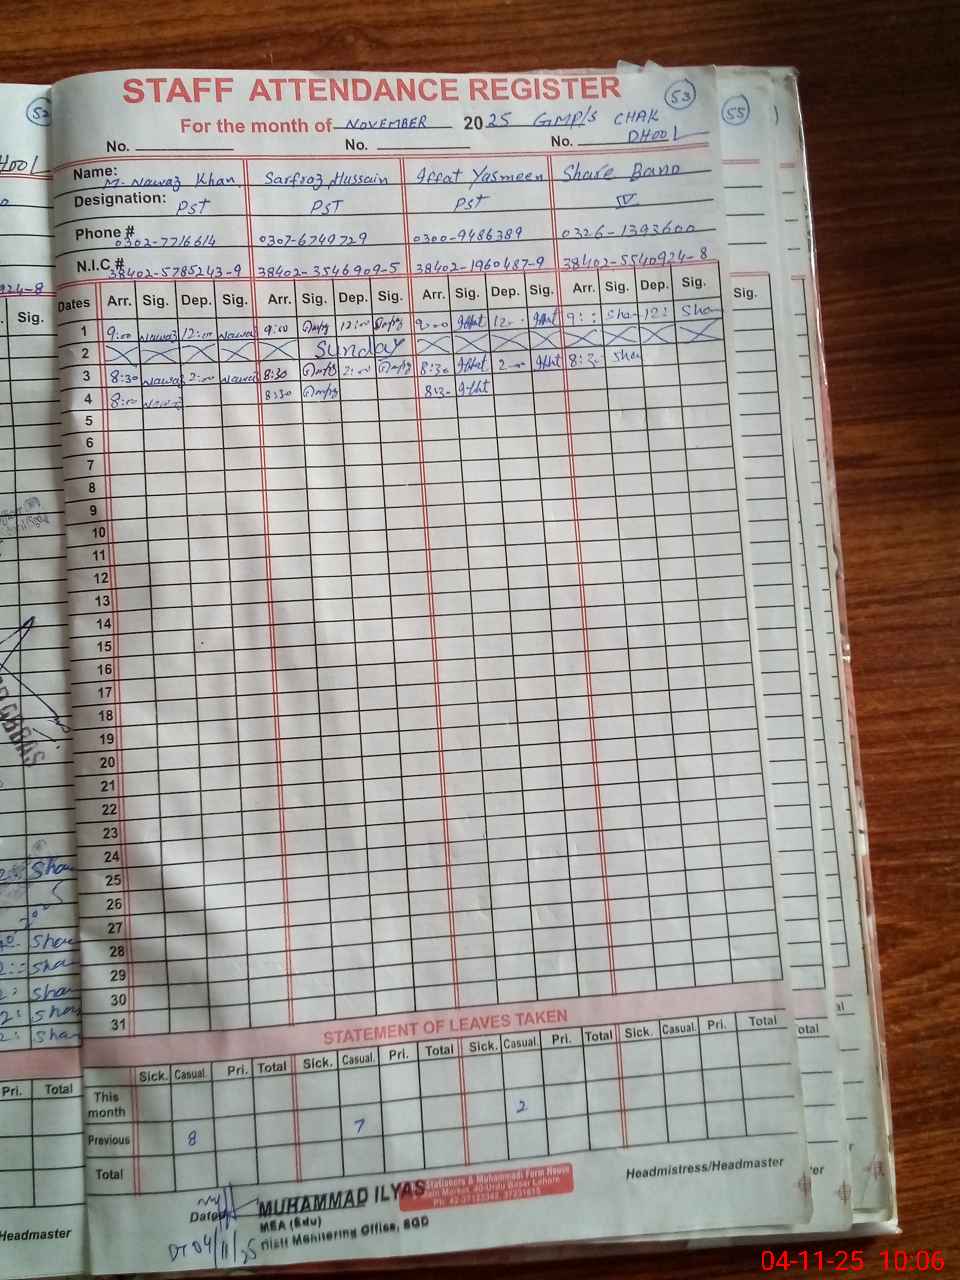 STAFF ATTENDANCE REGISTER 53
For the month of NOVEMBER 2025 GMP/S CHAK
No. No. No. DHOOL
Name: M. Nawaz Khan Sarfraz Hussain Iffat Yasmeen Share Bano
Designation: PST PST PST IV
Phone # 0302-7716614 0307-6749729 0300-9486389 0326-1393600
N.I.C.# 38402-5785243-9 38402-3546909-5 38402-1960487-9 38402-5540924-8
Dates Arr. Sig. Dep. Sig. Arr. Sig. Dep. Sig. Arr. Sig. Dep. Sig. Arr. Sig. Dep. Sig.
1 9:00 Nawaz 12:00 Nawaz 9:00 12:00 9:00 Iffat 12:00 Iffat 9:: Shar 12: Shar
2 Sunday
3 8:30 Nawaz 2:00 Nawaz 8:30 2:00 8:30 Iffat 2:00 Iffat 8:30 Shar
4 8:00 Nawaz 8:30 8:30 Iffat
5
6
7
8
9
10
11
12
13
14
15
16
17
18
19
20
21
22
23
24
25
26
27
28
29
30
31
STATEMENT OF LEAVES TAKEN
Sick. Casual. Pri. Total Sick. Casual. Pri. Total Sick. Casual. Pri. Total Sick. Casual. Pri. Total
This month
Previous 8 7 2
Total
Headmistress/Headmaster
Stationers & Muhammadi Form House
Main Market, 40-Urdu Bazar Lahore
Dated
MUHAMMAD ILYAS
MEA (Edu)
Distt Monitering Office, SGD
DT 04/11/25
55
Sig.
04-11-25 10:06